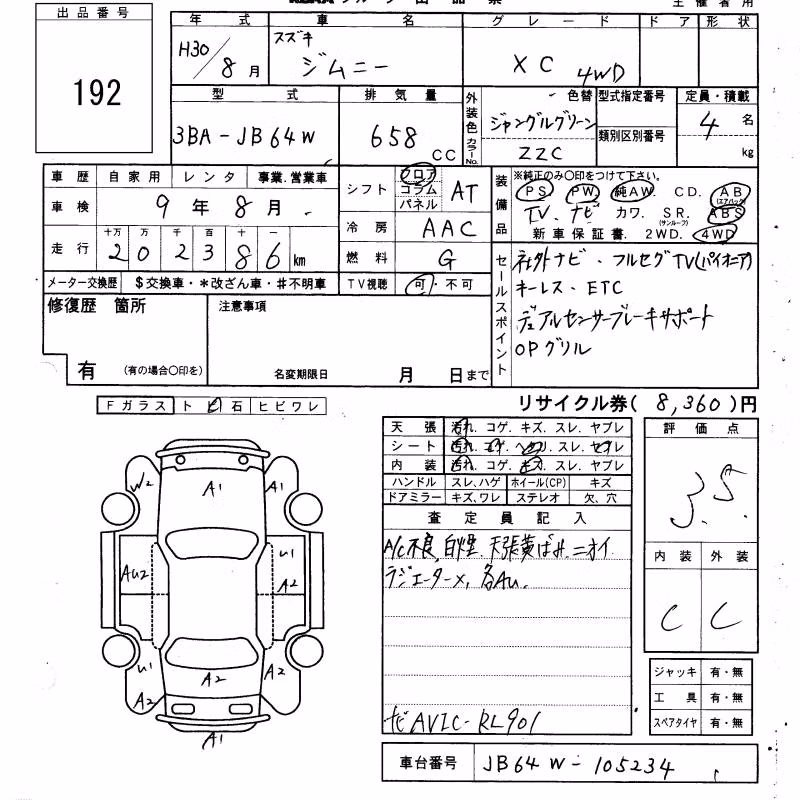 主催者用
出品番号
192
年式 車名 グレード ドア 形状
H30/8月 スズキ ジムニー XC 4WD
型式 排気量 外装色 カラーNo. 色替 型式指定番号 定員・積載
3BA-JB64W 658CC ジャングルグリーン ZZC 類別区別番号 4名 kg
車歴 自家用 レンタ 事業.営業車
車検 9年8月
走行 十万 万 千 百 十 一
202386km
メーター交換歴 $交換車・*改ざん車・#不明車
シフト フロア コラム パネル AT
冷房 AAC
燃料 G
TV視聴 可・不可
装備品 ※純正のみ〇印をつけて下さい。
PS PW 純AW. CD. AB(エアバッグ)
TV. ナビ カワ. SR.(サンルーフ) ABS
新車保証書. 2WD. 4WD
セールスポイント
社外ナビ・フルセグTV(パイオニア)
キーレス・ETC
デュアルセンサーブレーキサポート
OPグリル
修復歴 箇所
有 (有の場合〇印を)
注意事項
名変期限日 月 日まで
リサイクル券( 8,360)円
Fガラス ト ビ 石 ヒビワレ
天張 汚れ. コゲ. キズ. スレ. ヤブレ
シート 汚れ. コゲ. ヘタリ. スレ. ヤブレ
内装 汚れ. コゲ. キズ. スレ. ヤブレ
ハンドル スレ,ハゲ ホイール(CP) キズ
ドアミラー キズ,ワレ ステレオ 欠、穴
査定員記入
A/C不良, 白煙. 天張黄ばみ.ニオイ
ラジエーター×, 各Au.
ナビAVIC-RL901
評価点
3.5
内装 外装
C C
ジャッキ 有・無
工具 有・無
スペアタイヤ 有・無
車台番号 JB64W-105234
W2 A1 A1
Au2 U1 A2
U1 A2 A2 A2
A1